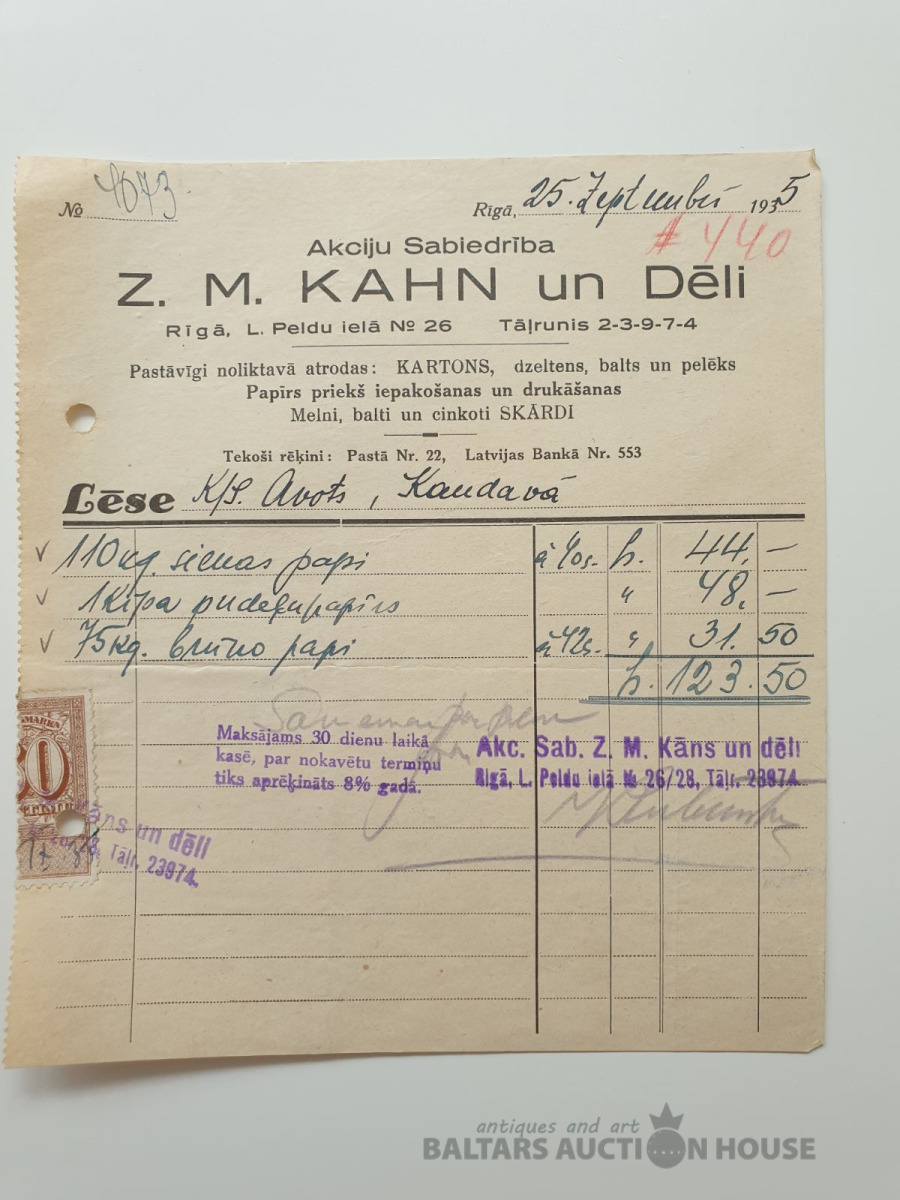 No 4073.
Rīgā, 25. Zeptembrī 1935
# 440
Akciju Sabiedrība
Z. M. KAHN un Dēli
Rīgā, L. Peldu ielā № 26 Tāļrunis 2-3-9-7-4
Pastāvīgi noliktavā atrodas: KARTONS, dzeltens, balts un pelēks
Papīrs priekš iepakošanas un drukāšanas
Melni, balti un cinkoti SKĀRDI
Tekoši rēķini: Pastā Nr. 22, Latvijas Bankā Nr. 553
Lēse K/S. Avots, Kandavā
110 kg. sienas papi à 40s. Ls. 44. —
1 ķīpa pudeļu papīrs " 48. —
75 kg. brūno papi à 42s. " 31.50
Ls. 123.50
Maksājams 30 dienu laikā
kasē, par nokavētu termiņu
tiks aprēķināts 8% gadā.
Akc. Sab. Z. M. Kāns un dēli
Rīgā, L. Peldu ielā № 26/28, Tāļr. 23974.
MARKA
30
Kāns un dēli
Tāļr. 23974.
antiques and art
BALTARS AUCTION HOUSE